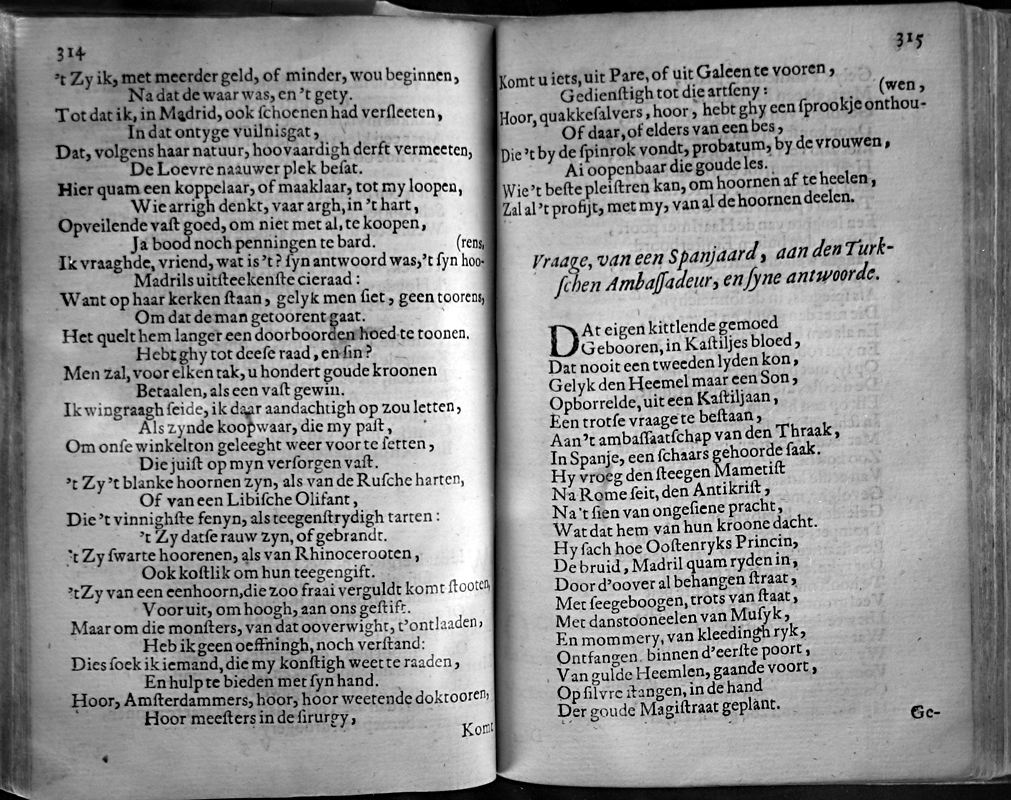 314
't Zy ik, met meerder geld, of minder, wou beginnen,
Na dat de waar was, en 't gety.
Tot dat ik, in Madrid, ook ſchoenen had verſleeten,
In dat ontyge vuilnisgat,
Dat, volgens haar natuur, hoovaardigh derft vermeeten,
De Loevre naauwer plek beſat.
Hier quam een koppelaar, of maaklaar, tot my loopen,
Wie arrigh denkt, vaar argh, in 't hart,
Opveilende vaſt goed, om niet met al, te koopen,
Ja bood noch penningen te bard. (rens,
Ik vraaghde, vriend, wat is 't? ſyn antwoord was, 't ſyn hoo-
Madrils uitſteekenſte cieraad:
Want op haar kerken ſtaan, gelyk men ſiet, geen toorens,
Om dat de man getoorent gaat.
Het quelt hem langer een doorboorden hoed te toonen.
Hebt ghy tot deeſe raad, en ſin?
Men zal, voor elken tak, u hondert goude kroonen
Betaalen, als een vaſt gewin.
Ik wingraagh ſeide, ik daar aandachtigh op zou letten,
Als zynde koopwaar, die my paſt,
Om onſe winkelton geleeght weer voor te ſetten,
Die juiſt op myn verſorgen vaſt.
't Zy 't blanke hoornen zyn, als van de Ruſche harten,
Of van een Libiſche Olifant,
Die 't vinnighſte fenyn, als teegenſtrydigh tarten:
't Zy datſe rauw zyn, of gebrandt.
't Zy ſwarte hoorenen, als van Rhinocerooten,
Ook koſtlik om hun teegengift.
't Zy van een eenhoorn, die zoo fraai verguldt komt ſtooten,
Vooruit, om hoogh, aan ons geſtift.
Maar om die monſters, van dat ooverwight, t'ontlaaden,
Heb ik geen oeffningh, noch verſtand:
Dies ſoek ik iemand, die my konſtigh weet te raaden,
En hulp te bieden met ſyn hand.
Hoor, Amſterdammers, hoor, hoor weetende doktooren,
Hoor meeſters in de ſirurgy,
Komt
315
Komt u iets, uit Pare, of uit Galeen te vooren,
Gedienſtigh tot die artſeny: (wen,
Hoor, quakkeſalvers, hoor, hebt ghy een ſprookje onthou-
Of daar, of elders van een bes,
Die 't by de ſpinrok vondt, probatum, by de vrouwen,
Ai oopenbaar die goude les.
Wie 't beſte pleiſtren kan, om hoornen af te heelen,
Zal al 't profijt, met my, van al de hoornen deelen.
Vraage, van een Spanjaard, aan den Turk-
ſchen Ambaſſadeur, en ſyne antwoorde.
DAt eigen kittlende gemoed
Gebooren, in Kaſtiljes bloed,
Dat nooit een tweeden lyden kon,
Gelyk den Heemel maar een Son,
Opborrelde, uit een Kaſtiljaan,
Een trotſe vraage te beſtaan,
Aan 't ambaſſaatſchap van den Thraak,
In Spanje, een ſchaars gehoorde ſaak.
Hy vroeg den ſteegen Mametiſt
Na Rome ſeit, den Antikriſt,
Na 't ſien van ongeſiene pracht,
Wat dat hem van hun kroone dacht.
Hy ſach hoe Ooſtenryks Princin,
De bruid, Madril quam ryden in,
Door d'oover al behangen ſtraat,
Met ſeegeboogen, trots van ſtaat,
Met danstooneelen van Muſyk,
En mommery, van kleedingh ryk,
Ontfangen, binnen d'eerſte poort,
Van gulde Heemlen, gaande voort,
Op ſilvre ſtangen, in de hand
Der goude Magiſtraat geplant.
Ge-